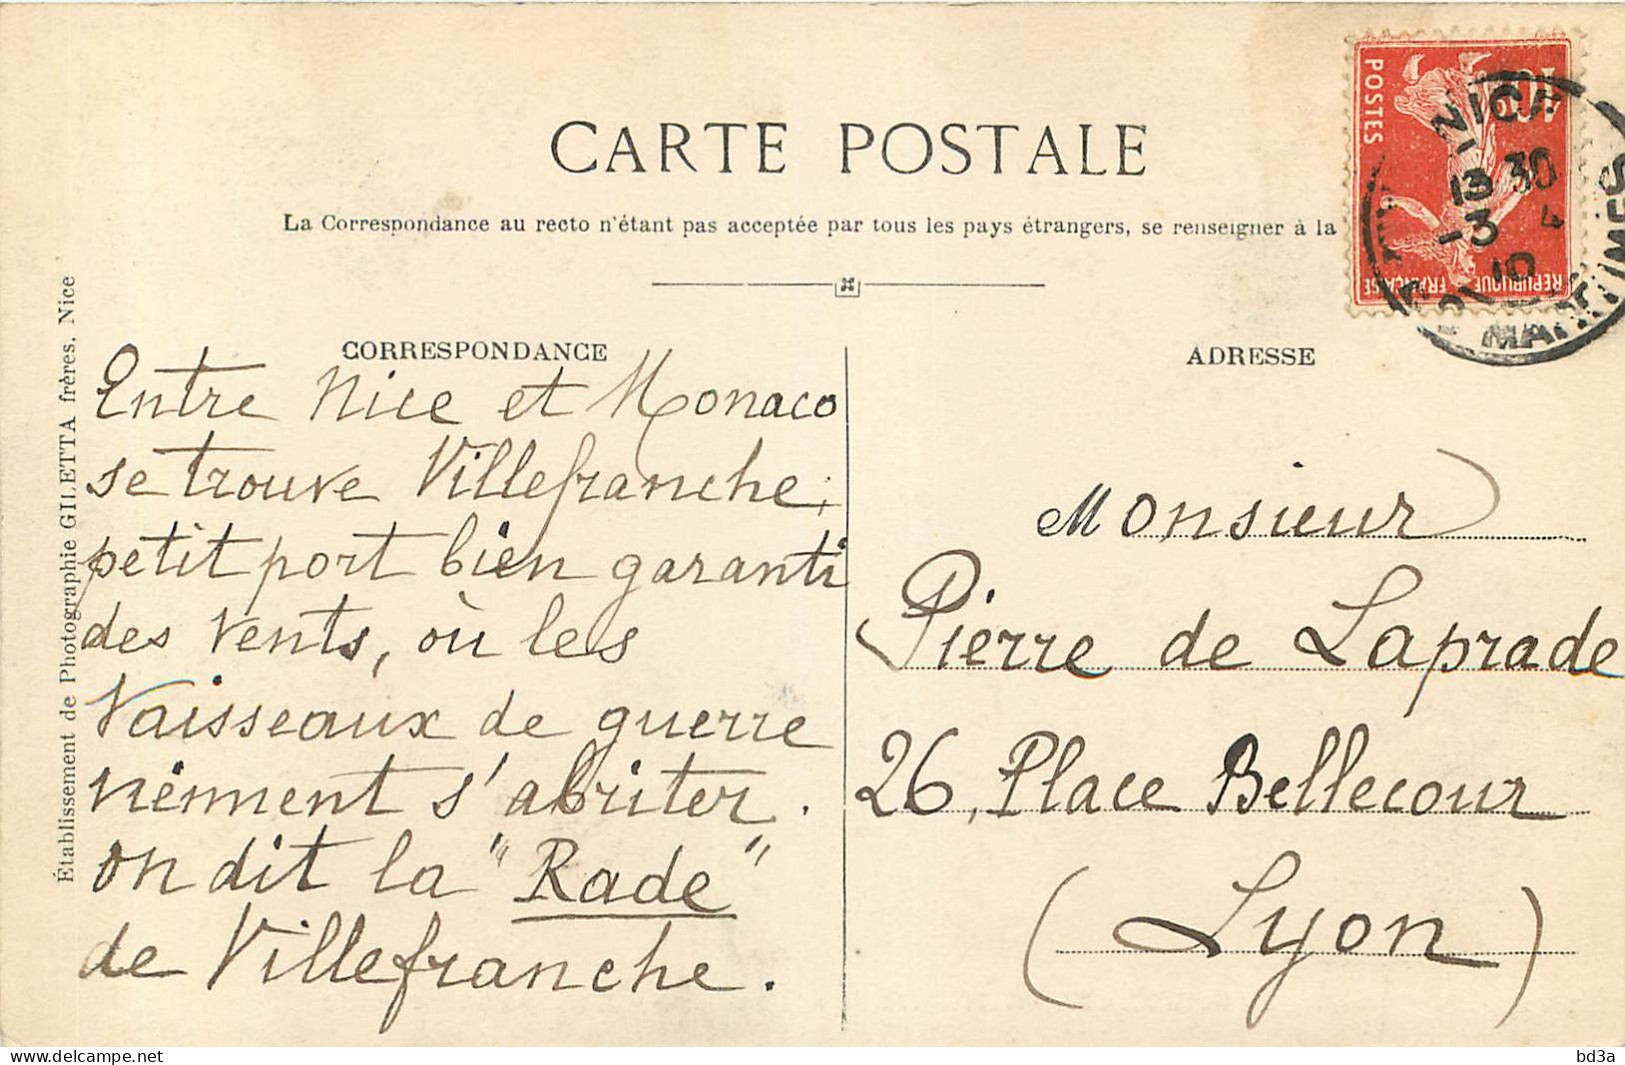 CARTE POSTALE
La Correspondance au recto n'étant pas acceptée par tous les pays étrangers, se renseigner à la
CORRESPONDANCE
Entre Nice et Monaco
se trouve Villefranche,
petit port bien garanti
des vents, où les
Vaisseaux de guerre
viennent s'abriter.
on dit la "Rade"
de Villefranche.
Établissement de Photographie GILETTA frères, Nice
ADRESSE
Monsieur
Pierre de Laprade
26, Place Bellecour
(Lyon)
POSTES
10
REPUBLIQUE FRANÇAISE
NICE
13 30
-3
10
MARITIMES
delcampe.net
bd3a